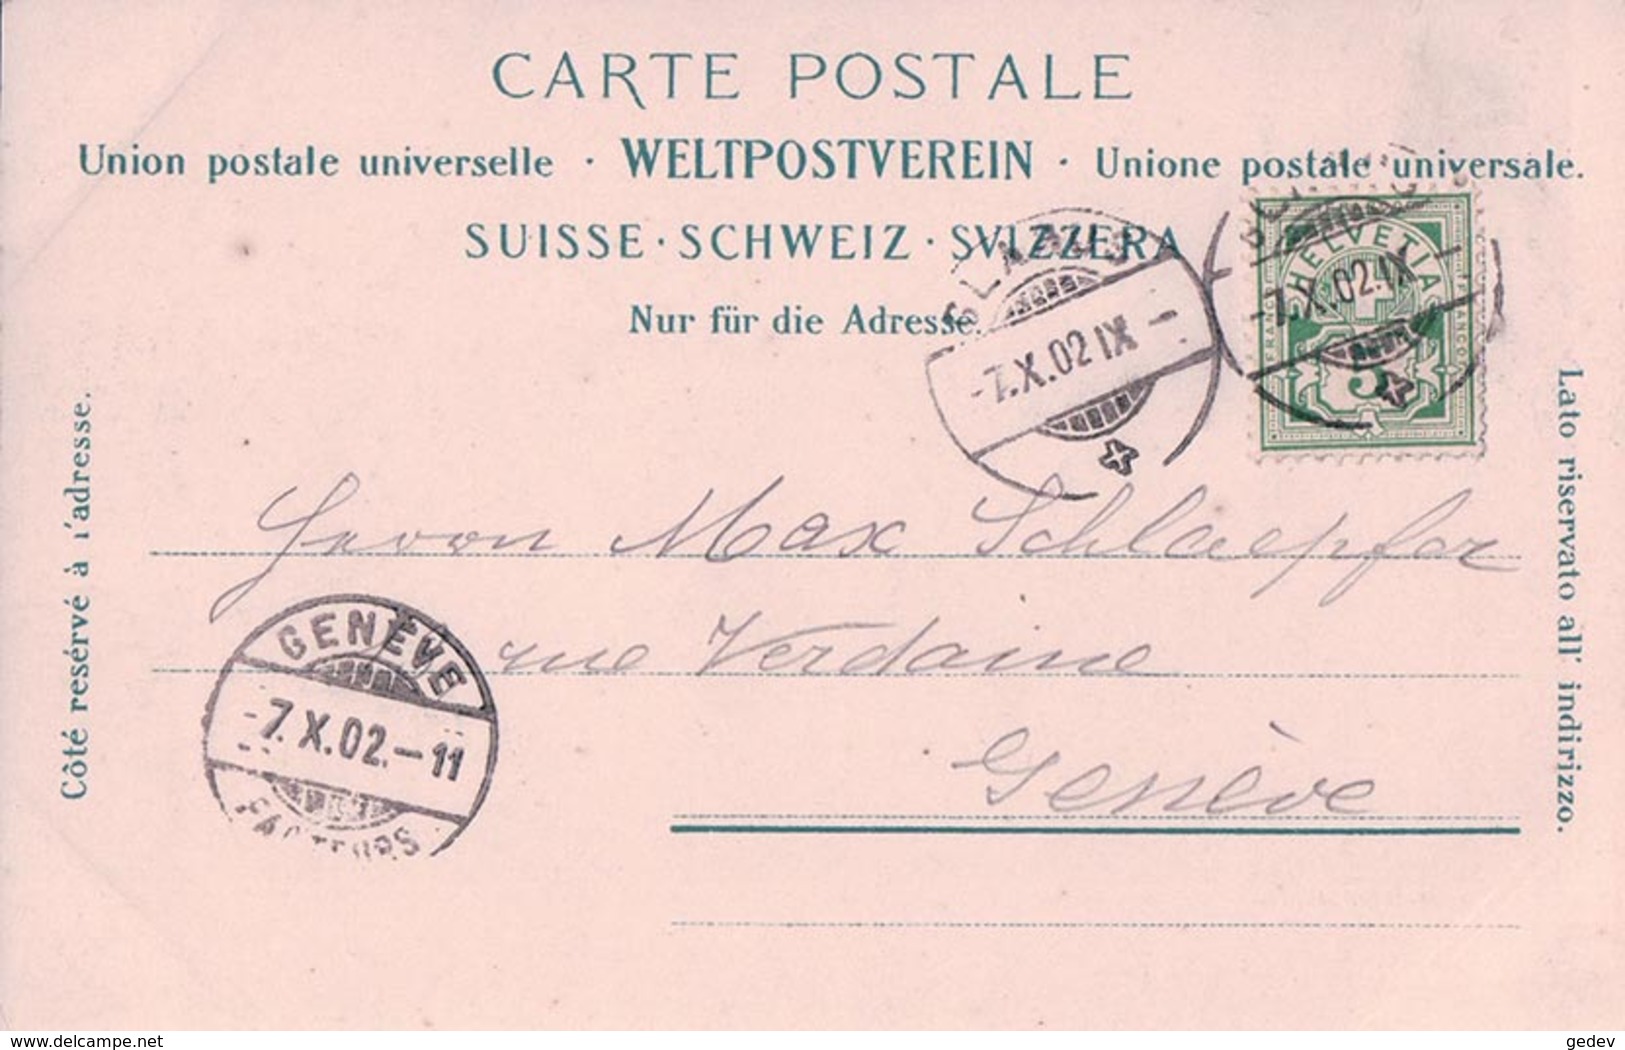 CARTE POSTALE
Union postale universelle · WELTPOSTVEREIN · Unione postale universale.
SUISSE · SCHWEIZ · SVIZZERA
Nur für die Adresse.
GLARUS
-7.X.02 IX -
-7.X.02.IX -
HELVETIA
FRANCO
FRANCO
5
Côté resérvé à l'adresse.
Lato riservato all' indirizzo.
Herrn Max Schlaepfer
rue Verdaine
Genève
GENÈVE
-7.X.02.-11
FACTEURS
www.delcampe.net
gedev